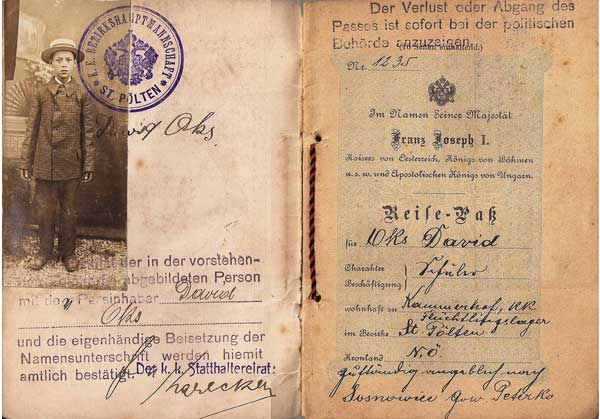 K. K. BEZIRKSHAUPTMANNSCHAFT
ST. PÖLTEN
Oks
der in der vorstehen-
abgebildeten Person
mit dem Paßinhaber David
Oks
und die eigenhändige Beisetzung der
Namensunterschrift werden hiemit
amtlich bestätigt.
Der k. k. Statthaltereirat:
Der Verlust oder Abgang des
Passes ist sofort bei der politischen
Behörde anzuzeigen.
Nr. 1235
Im Namen Seiner Majestät
Franz Joseph I.
Kaisers von Oesterreich, Königs von Böhmen
u. s. w. und Apostolischen Königs von Ungarn.
Reise-Paß
für Oks David
Charakter
Beschäftigung } Schüler
wohnhaft in Kammerhof, kk
Flüchtlingslager
im Bezirke St Pölten
Kronland N.Ö.
nach
Sosnowice Gow Peterko